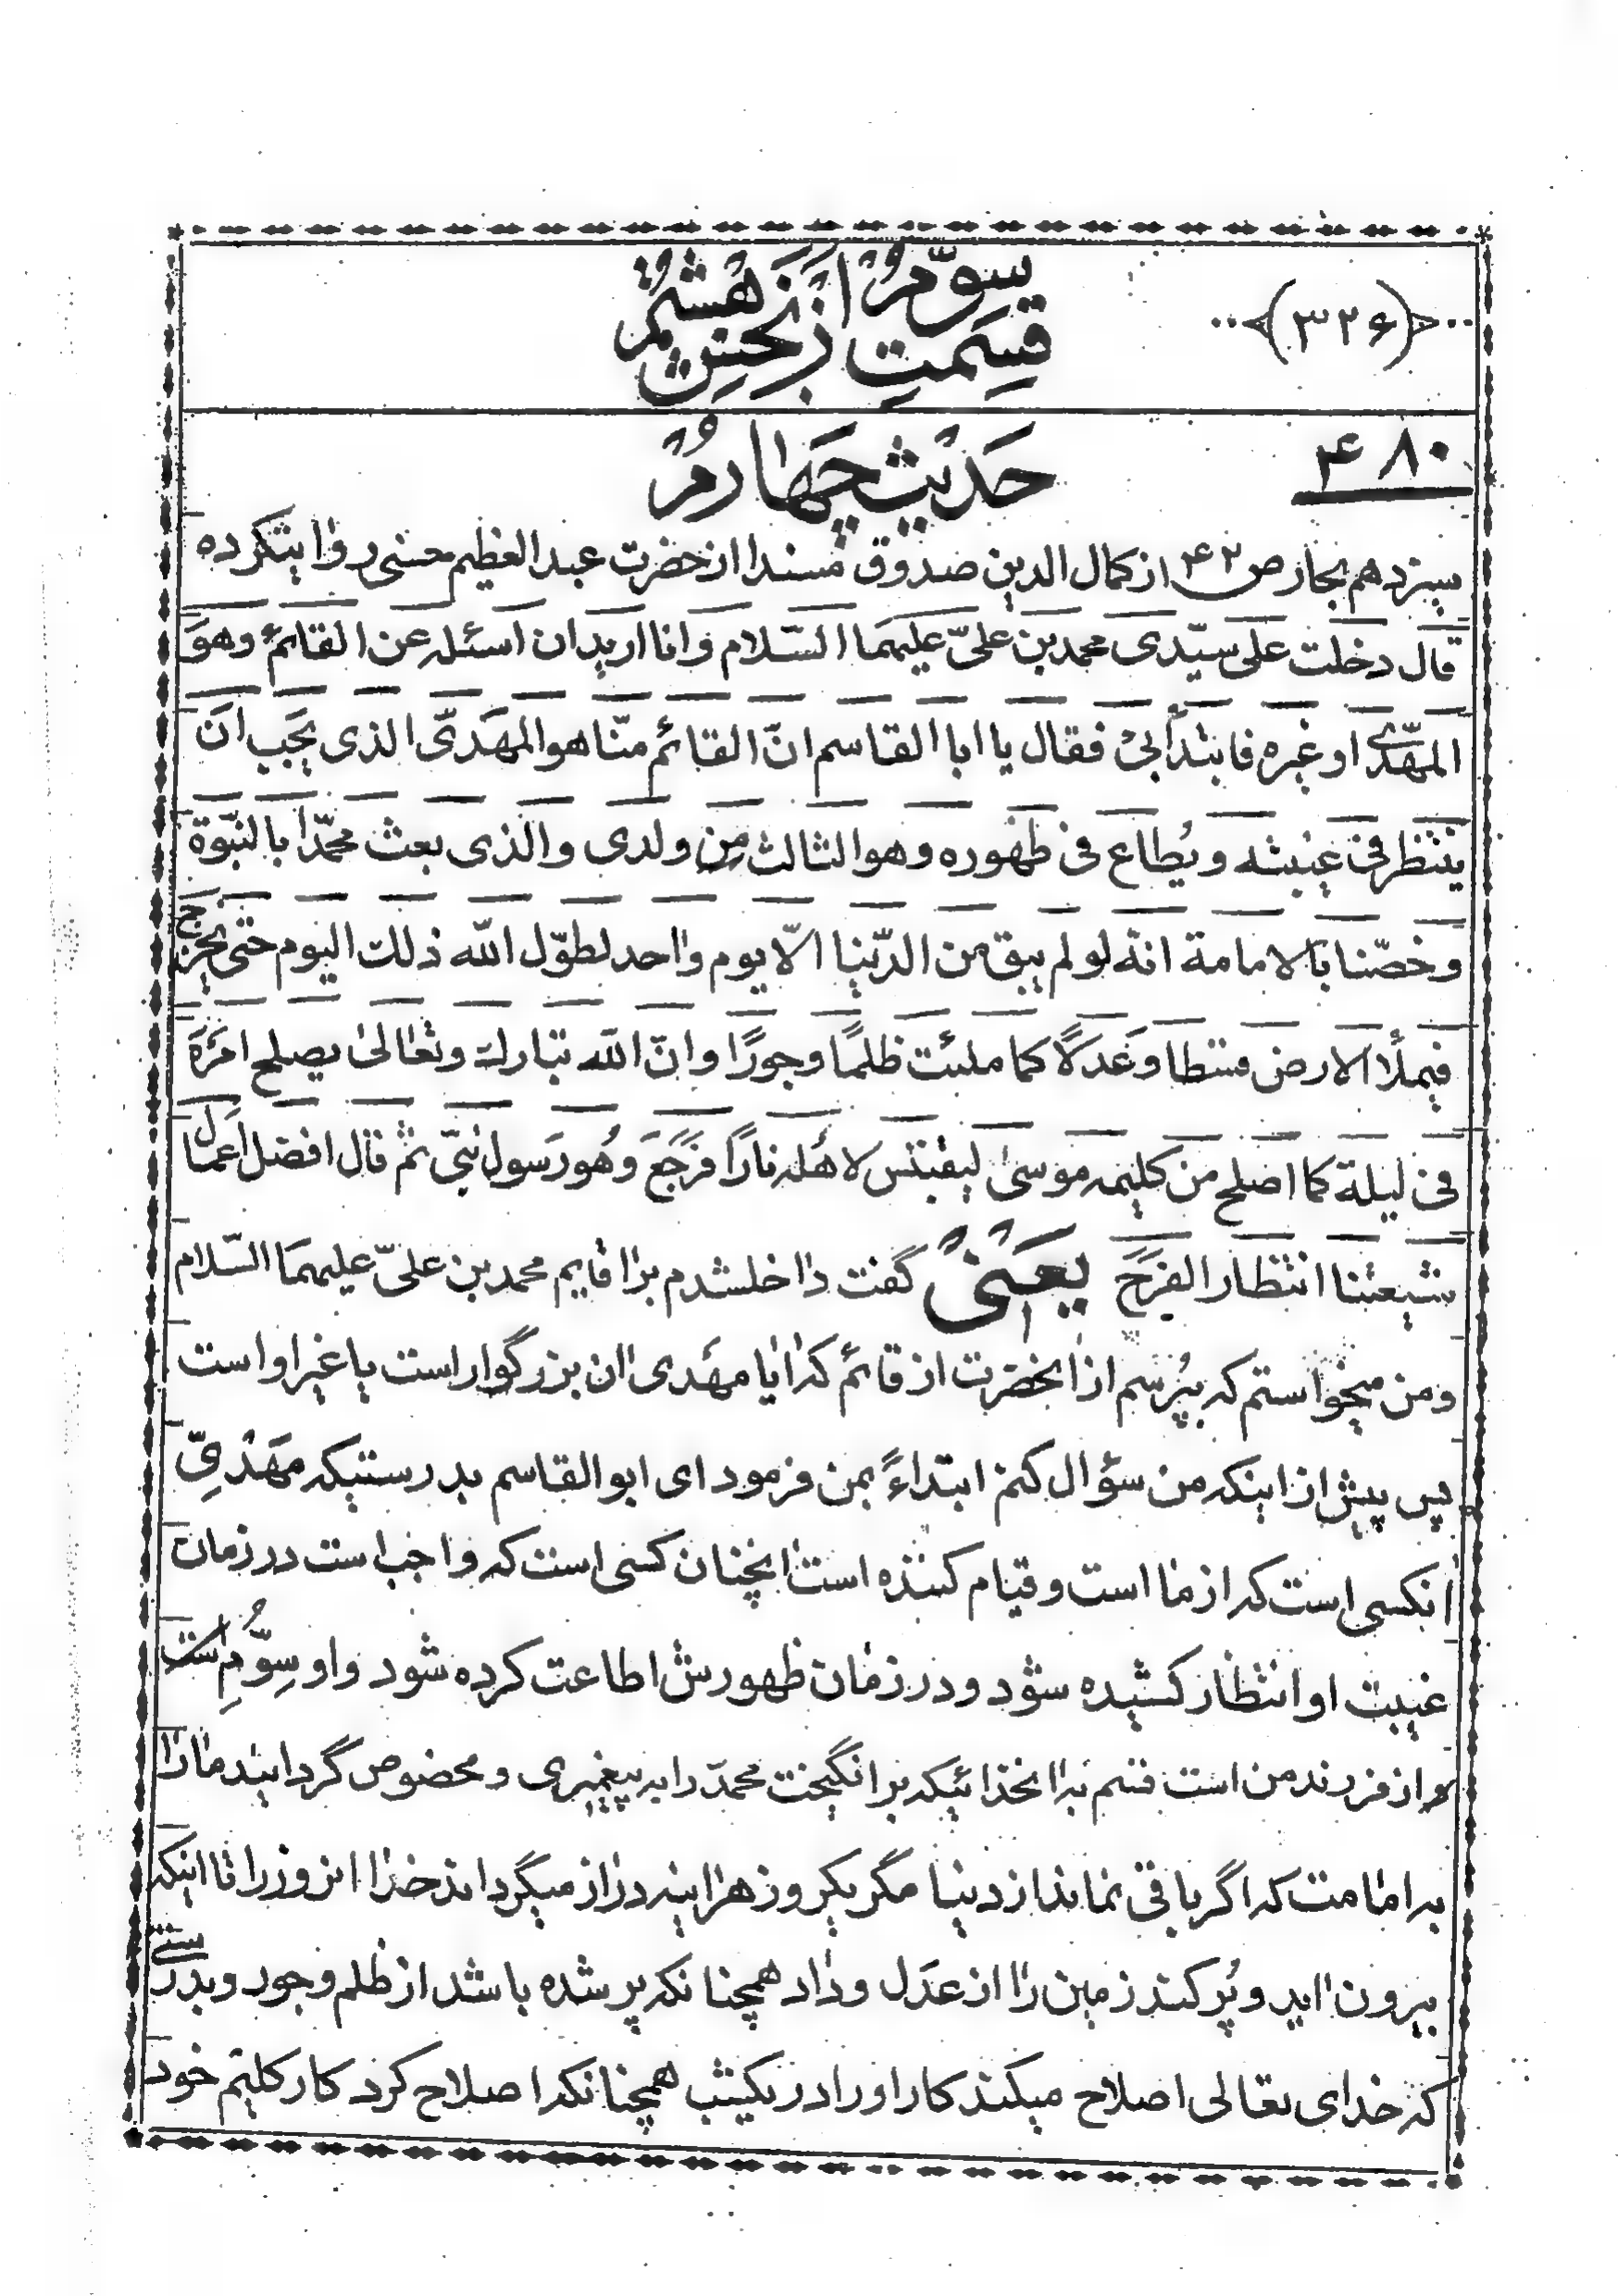 (۳۲۶)
قسمت سوّم از بخش هشتم
۴۸۰
حدیث چهارم
سیزدهم بحار ص ۴۲ از کمال الدین صدوق مسندا از حضرت عبدالعظیم حسنی روایتکرده
قال دخلت علی سیّدی محمد بن علیّ علیهما السّلام و انا ارید ان اسئله عن القائم وهو
المهدّی او غیره فابتدأنی فقال یا ابا القاسم انّ القائم منّا هو المهدیّ الذی یجب ان
ینتظر فی غیبته و یُطاع فی ظهوره و هو الثالث من ولدی والذی بعث محمّدا بالنبّوة
وخصّنا بالامامة انّه لو لم یبق من الدّنیا الّا یوم واحد لطوّل الله ذلک الیوم حتی یخرج
فیملأ الارض قسطا وعدلًا کما ملئت ظلمًا وجورًا وانّ الله تبارک وتعالیٰ یصلح امره
فی لیلة کما اصلح من کلیمه موسیٰ لیقبتس لاهله نارًا فرجع وهو رسول نبیّ ثم قال افضل اعمال
شیعتنا انتظار الفرج یعنی گفت داخلشدم بر اقایم محمد بن علیّ علیهما السّلام
ومن میخواستم که بپرسم از انحضرت از قائم که ایا مهدی ان بزرگوار است یا غیر او است
پس پیش از اینکه من سؤال کنم ابتداءً بمن فرمود ای ابوالقاسم بدرستیکه مهدیِّ
انکسی است که از ما است و قیام کننده است انچنان کسی است که واجب است در زمان
غیبت او انتظار کشیده شود و در زمان ظهورش اطاعت کرده شود واو سِوّمِ است
از فرزند من است قسم به انخدائیکه برانگیخت محمّد را به پیغمبری و مخصوص گردانید ما را
به امامت که اگر باقی نماند از دنیا مگر یکروز هراینه دراز میگرداند خدا انروز را تا اینکه
بیرون اید و پُر کند زمین را از عدل و داد همچنانکه پر شده باشد از ظلم وجور و بدرستی
که خدای تعالی اصلاح میکند کار او را در یکشب همچنانکه اصلاح کرد کار کلیم خود